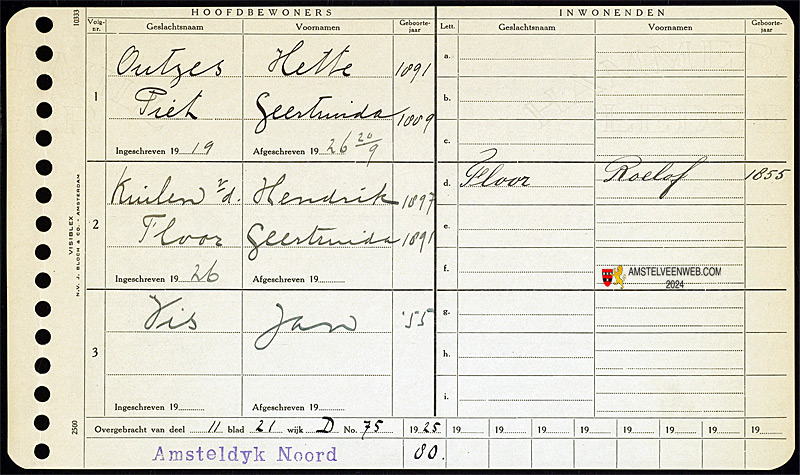 HOOFDBEWONERS
INWONENDEN
10333
Volg-nr.
Geslachtsnaam
Voornamen
Geboorte-jaar
Lett.
Geslachtsnaam
Voornamen
Geboorte-jaar
1
Outges Hette 1891
Piet Geertruida 1889
Ingeschreven 19 19 Afgeschreven 19 26 20/9
2
Kuilen v/d. Hendrik 1897
Floor Geertruida 1891
Ingeschreven 19 26 Afgeschreven 19
3
Vis Jan '55
Ingeschreven 19 Afgeschreven 19
a.
b.
c.
d. Floor Roelof 1855
e.
f.
g.
h.
i.
AMSTELVEENWEB.COM
2024
VISIBLEX
N.V. J. BLOCH & CO. - AMSTERDAM
2500
Overgebracht van deel 11 blad 21 wijk D No. 75 19 25 19 19 19 19 19 19 19 19
Amsteldyk Noord 80.